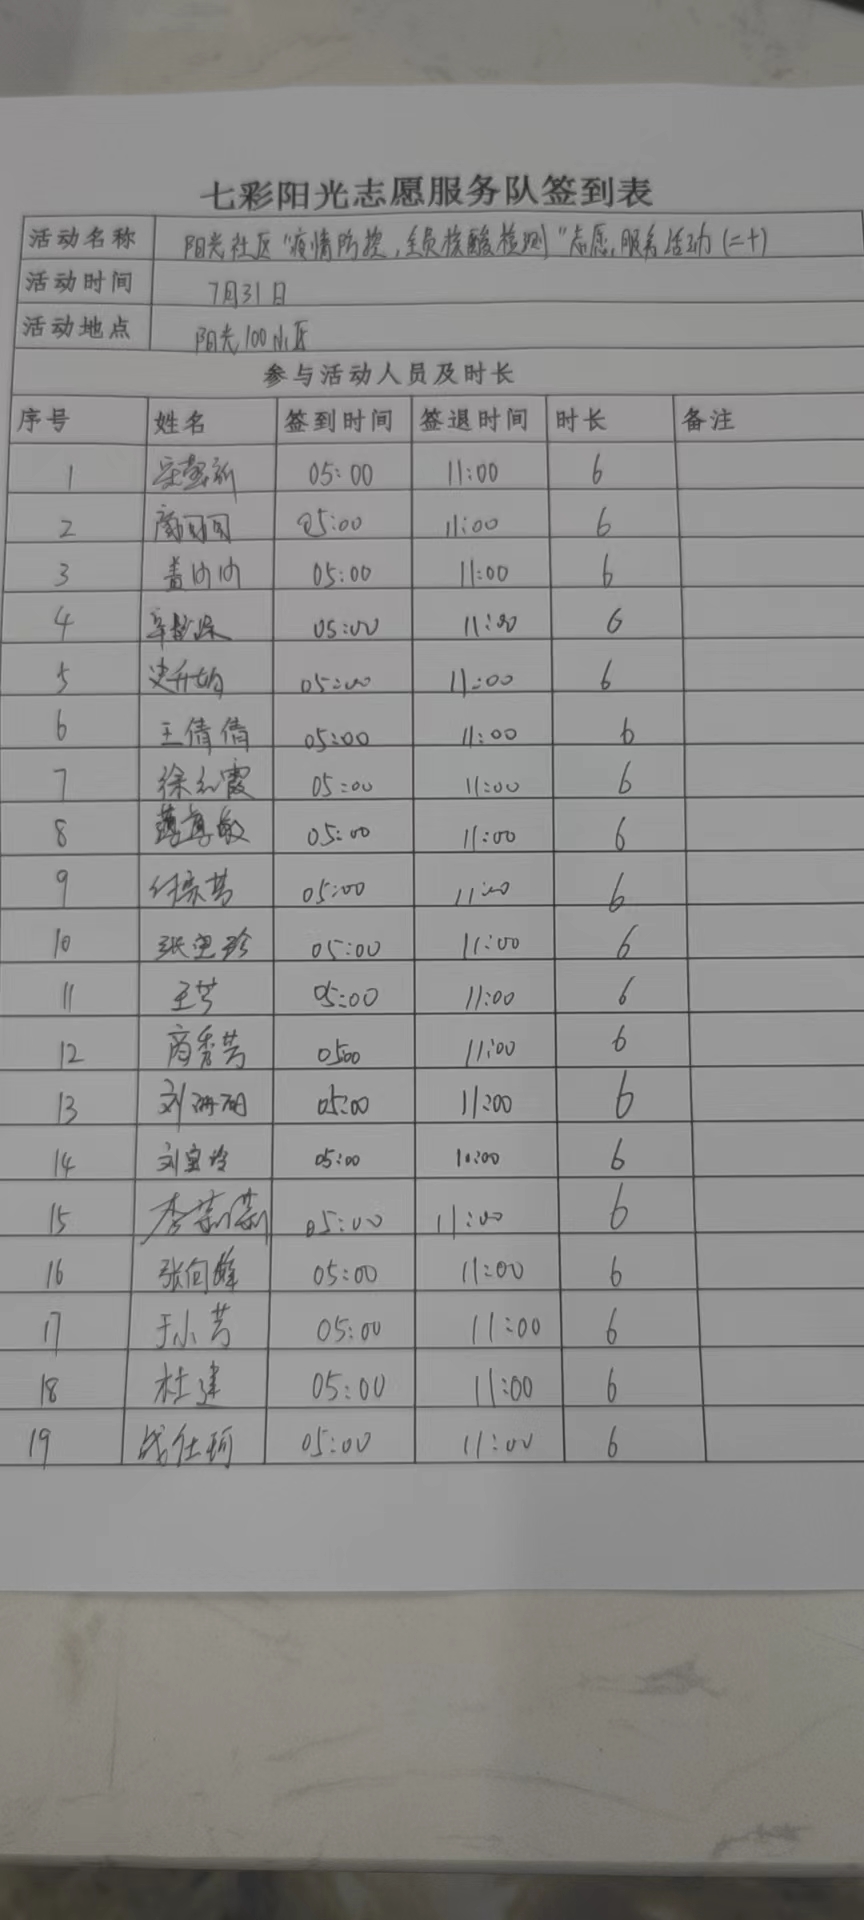 七彩阳光志愿服务队签到表
活动名称 阳光社区“疫情防控,全员核酸检测”志愿服务活动(二十)
活动时间 7月31日
活动地点 阳光100小区
参与活动人员及时长
序号 姓名 签到时间 签退时间 时长 备注
1 05:00 11:00 6
2 05:00 11:00 6
3 05:00 11:00 6
4 05:00 11:00 6
5 05:00 11:00 6
6 王倩倩 05:00 11:00 6
7 徐红霞 05:00 11:00 6
8 05:00 11:00 6
9 05:00 11:00 6
10 05:00 11:00 6
11 王芳 05:00 11:00 6
12 商秀芳 0500 11:00 6
13 刘珊珊 05:00 11:00 6
14 刘宝玲 05:00 11:00 6
15 李莉莉 05:00 11:00 6
16 05:00 11:00 6
17 于小芳 05:00 11:00 6
18 杜建 05:00 11:00 6
19 05:00 11:00 6